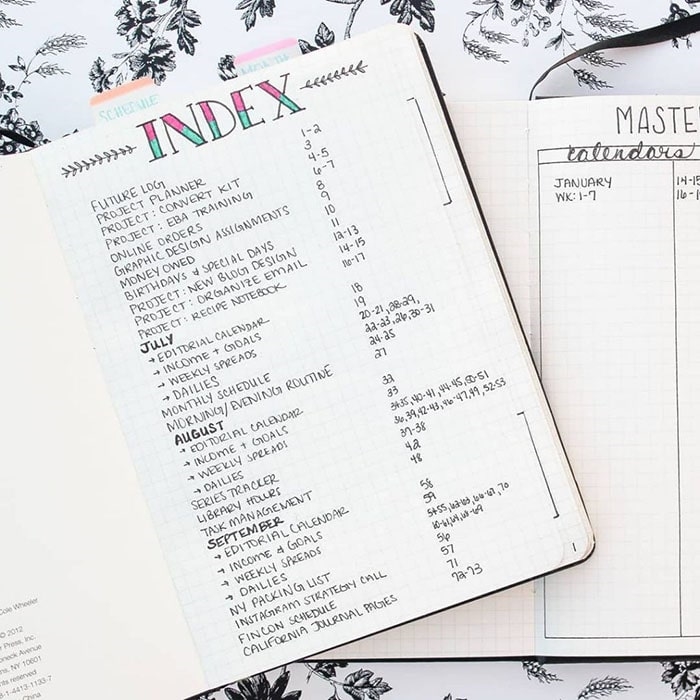 SCHEDULE
MONTH
INDEX
FUTURE LOG 1-2
PROJECT PLANNER 3
PROJECT: CONVERT KIT 4-5
PROJECT: EBA TRAINING 6-7
ONLINE ORDERS 8
GRAPHIC DESIGN ASSIGNMENTS 9
MONEY OWED 10
BIRTHDAYS & SPECIAL DAYS 11
PROJECT: NEW BLOG DESIGN 12-13
PROJECT: ORGANIZE EMAIL 14-15
PROJECT: RECIPE NOTEBOOK 16-17
JULY
→ EDITORIAL CALENDAR 18
→ INCOME + GOALS 19
→ WEEKLY SPREADS 20-21, 28-29,
→ DAILIES 22-23, 26, 30-31
MONTHLY SCHEDULE 24-25
MORNING/EVENING ROUTINE 27
AUGUST
→ EDITORIAL CALENDAR
→ INCOME + GOALS 33
→ WEEKLY SPREADS 34-35, 40-41, 44-45, 50-51
→ DAILIES 36, 39, 42-43, 46-47, 49, 52-53
SERIES TRACKER 37-38
LIBRARY HOURS 42
TASK MANAGEMENT 48
SEPTEMBER
→ EDITORIAL CALENDAR 58
→ INCOME & GOALS 59
→ WEEKLY SPREADS 54-55, 62-63, 66-67, 70
→ DAILIES 60-61, 64, 68-69
NY PACKING LIST 56
INSTAGRAM STRATEGY CALL 57
FINCON SCHEDULE 71
CALIFORNIA JOURNAL PAGES 72-73
1
MASTE
calendars
JANUARY 14-15
WK: 1-7 16-1
Cole Wheeler
© 2012
Press, Inc.
Avenue
NY 10601
8-1-4413-1133-7
China